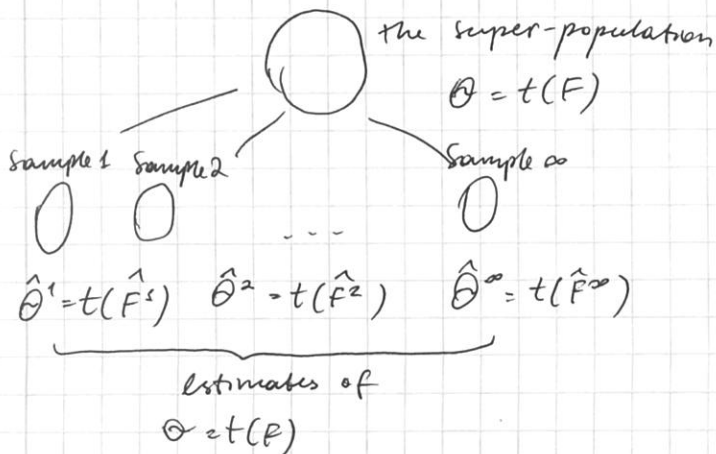 the super-population
θ = t(F)
Sample 1 Sample 2 Sample ∞
- - -
θ̂¹ = t(F̂¹) θ̂² = t(F̂²) θ̂^∞ = t(F̂^∞)
estimates of
θ = t(F)